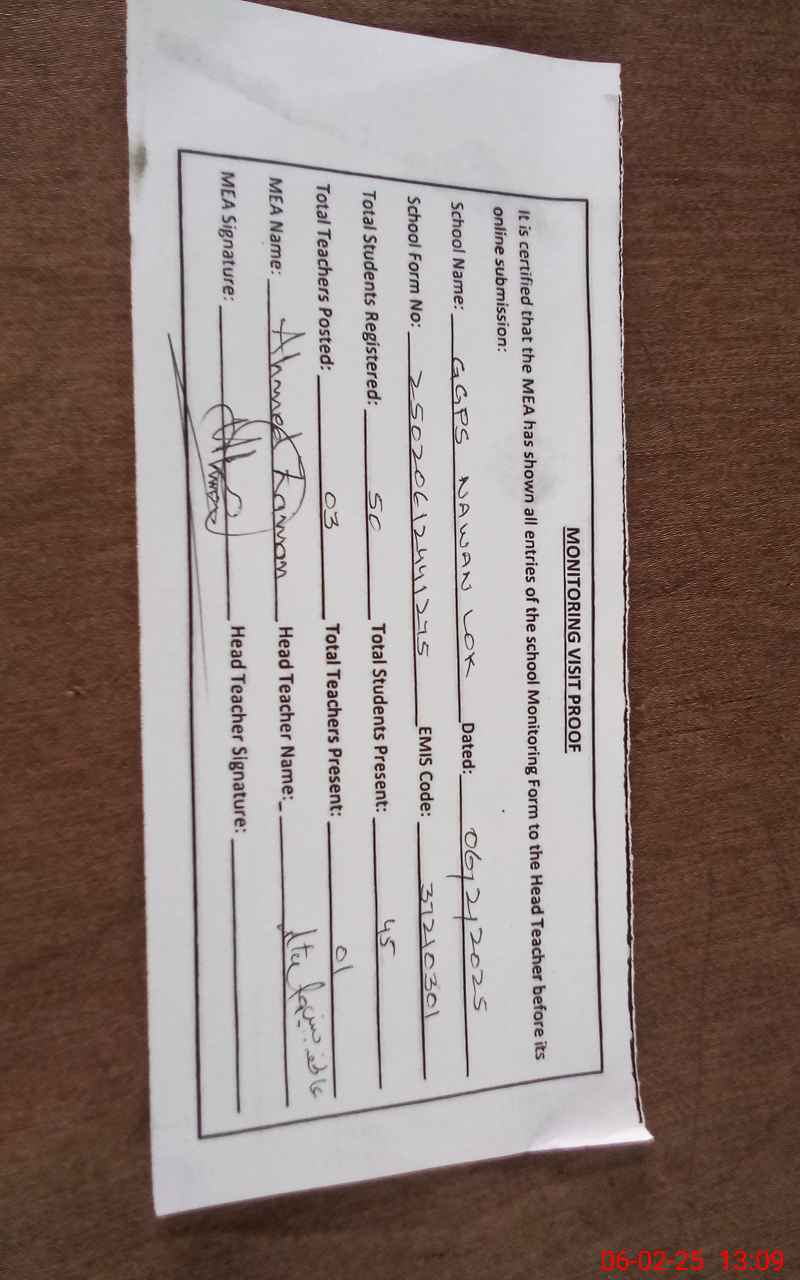 MONITORING VISIT PROOF
It is certified that the MEA has shown all entries of the school Monitoring Form to the Head Teacher before its
online submission:
School Name: GGPS NAWAN LOK Dated: 06/2/2025
School Form No: 25020612441275 EMIS Code: 37210301
Total Students Registered: 50 Total Students Present: 45
Total Teachers Posted: 03 Total Teachers Present: 01
MEA Name: Ahmed Zaman Head Teacher Name:
MEA Signature: Head Teacher Signature:
06-02-25 13:09